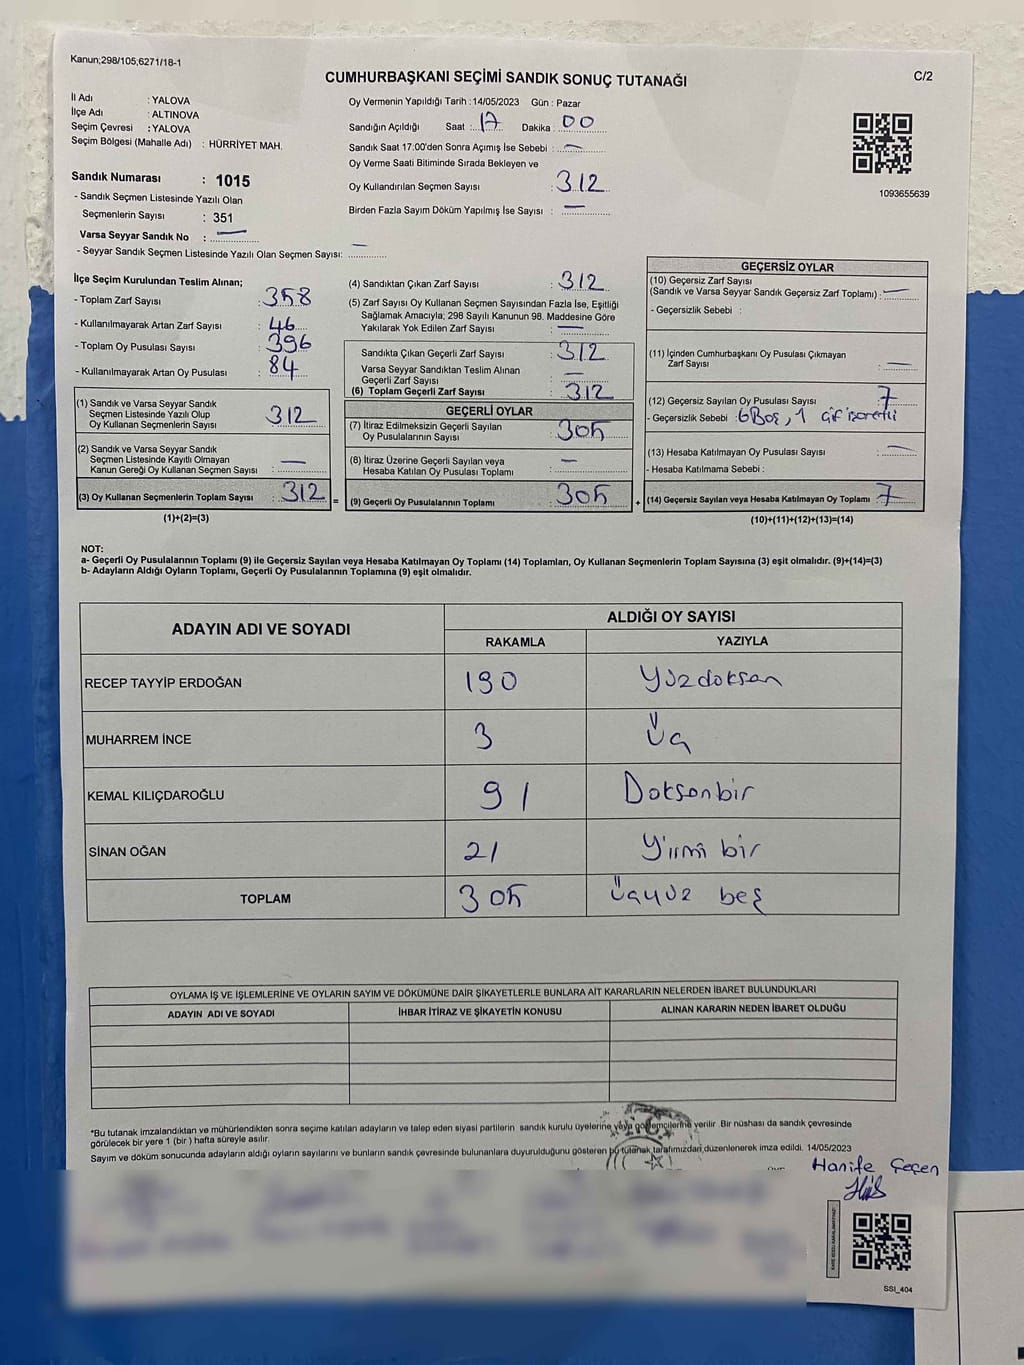 Kanun;298/105;6271/18-1
CUMHURBAŞKANI SEÇİMİ SANDIK SONUÇ TUTANAĞI
C/2
İl Adı : YALOVA
İlçe Adı : ALTINOVA
Seçim Çevresi : YALOVA
Seçim Bölgesi (Mahalle Adı) : HÜRRİYET MAH.
Oy Vermenin Yapıldığı Tarih : 14/05/2023 Gün : Pazar
Sandığın Açıldığı Saat : 17 Dakika : 00
Sandık Saat 17:00'den Sonra Açımış İse Sebebi : —
Oy Verme Saati Bitiminde Sırada Bekleyen ve
Oy Kullandırılan Seçmen Sayısı : 312
Birden Fazla Sayım Döküm Yapılmış İse Sayısı : —
1093655639
Sandık Numarası : 1015
- Sandık Seçmen Listesinde Yazılı Olan
Seçmenlerin Sayısı : 351
Varsa Seyyar Sandık No : —
- Seyyar Sandık Seçmen Listesinde Yazılı Olan Seçmen Sayısı: —
İlçe Seçim Kurulundan Teslim Alınan;
- Toplam Zarf Sayısı : 358
- Kullanılmayarak Artan Zarf Sayısı : 46
- Toplam Oy Pusulası Sayısı : 396
- Kullanılmayarak Artan Oy Pusulası : 84
(1) Sandık ve Varsa Seyyar Sandık
Seçmen Listesinde Yazılı Olup
Oy Kullanan Seçmenlerin Sayısı : 312
(2) Sandık ve Varsa Seyyar Sandık
Seçmen Listesinde Kayıtlı Olmayan
Kanun Gereği Oy Kullanan Seçmen Sayısı : —
(3) Oy Kullanan Seçmenlerin Toplam Sayısı : 312
(1)+(2)=(3)
(4) Sandıktan Çıkan Zarf Sayısı : 312
(5) Zarf Sayısı Oy Kullanan Seçmen Sayısından Fazla İse, Eşitliği
Sağlamak Amacıyla; 298 Sayılı Kanunun 98. Maddesine Göre
Yakılarak Yok Edilen Zarf Sayısı : —
Sandıkta Çıkan Geçerli Zarf Sayısı : 312
Varsa Seyyar Sandıktan Teslim Alınan
Geçerli Zarf Sayısı : —
(6) Toplam Geçerli Zarf Sayısı : 312
GEÇERLİ OYLAR
(7) İtiraz Edilmeksizin Geçerli Sayılan
Oy Pusulalarının Sayısı : 305
(8) İtiraz Üzerine Geçerli Sayılan veya
Hesaba Katılan Oy Pusulası Toplamı : —
= (9) Geçerli Oy Pusulalarının Toplamı : 305
GEÇERSİZ OYLAR
(10) Geçersiz Zarf Sayısı
(Sandık ve Varsa Seyyar Sandık Geçersiz Zarf Toplamı) : —
- Geçersizlik Sebebi :
(11) İçinden Cumhurbaşkanı Oy Pusulası Çıkmayan
Zarf Sayısı : —
(12) Geçersiz Sayılan Oy Pusulası Sayısı : 7
- Geçersizlik Sebebi : 6 Boş, 1 çif işoretli
(13) Hesaba Katılmayan Oy Pusulası Sayısı : —
- Hesaba Katılmama Sebebi :
+ (14) Geçersiz Sayılan veya Hesaba Katılmayan Oy Toplamı : 7
(10)+(11)+(12)+(13)=(14)
NOT:
a- Geçerli Oy Pusulalarının Toplamı (9) ile Geçersiz Sayılan veya Hesaba Katılmayan Oy Toplamı (14) Toplamları, Oy Kullanan Seçmenlerin Toplam Sayısına (3) eşit olmalıdır. (9)+(14)=(3)
b- Adayların Aldığı Oyların Toplamı, Geçerli Oy Pusulalarının Toplamına (9) eşit olmalıdır.
ADAYIN ADI VE SOYADI
ALDIĞI OY SAYISI
RAKAMLA YAZIYLA
RECEP TAYYİP ERDOĞAN 190 Yüzdoksan
MUHARREM İNCE 3 Üç
KEMAL KILIÇDAROĞLU 91 Doksanbir
SİNAN OĞAN 21 Yirmi bir
TOPLAM 305 Üçyüz beş
OYLAMA İŞ VE İŞLEMLERİNE VE OYLARIN SAYIM VE DÖKÜMÜNE DAİR ŞİKAYETLERLE BUNLARA AİT KARARLARIN NELERDEN İBARET BULUNDUKLARI
ADAYIN ADI VE SOYADI İHBAR İTİRAZ VE ŞİKAYETİN KONUSU ALINAN KARARIN NEDEN İBARET OLDUĞU
*Bu tutanak imzalandıktan ve mühürlendikten sonra seçime katılan adayların ve talep eden siyasi partilerin sandık kurulu üyelerine veya gözlemcilerine verilir .Bir nüshası da sandık çevresinde
görülecek bir yere 1 (bir ) hafta süreyle asılır.
Sayım ve döküm sonucunda adayların aldığı oyların sayılarını ve bunların sandık çevresinde bulunanlara duyurulduğunu gösteren bu tutanak tarafımızdan düzenlenerek imza edildi. 14/05/2023
Hanife Geçen
SSI_404